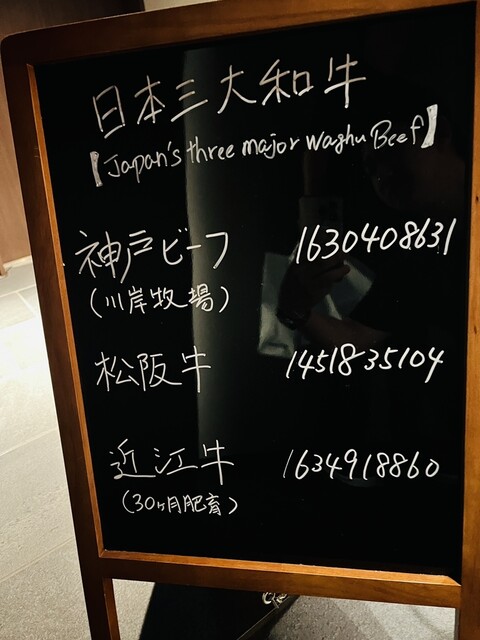 日本三大和牛
【Japan's three major waghu Beef】
神戸ビーフ 1630408631
(川岸牧場)
松阪牛 1451835104
近江牛 1634918860
(30ヶ月肥育)